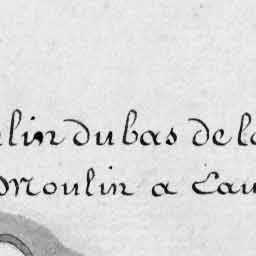 lin du bas de la
Moulin a eau